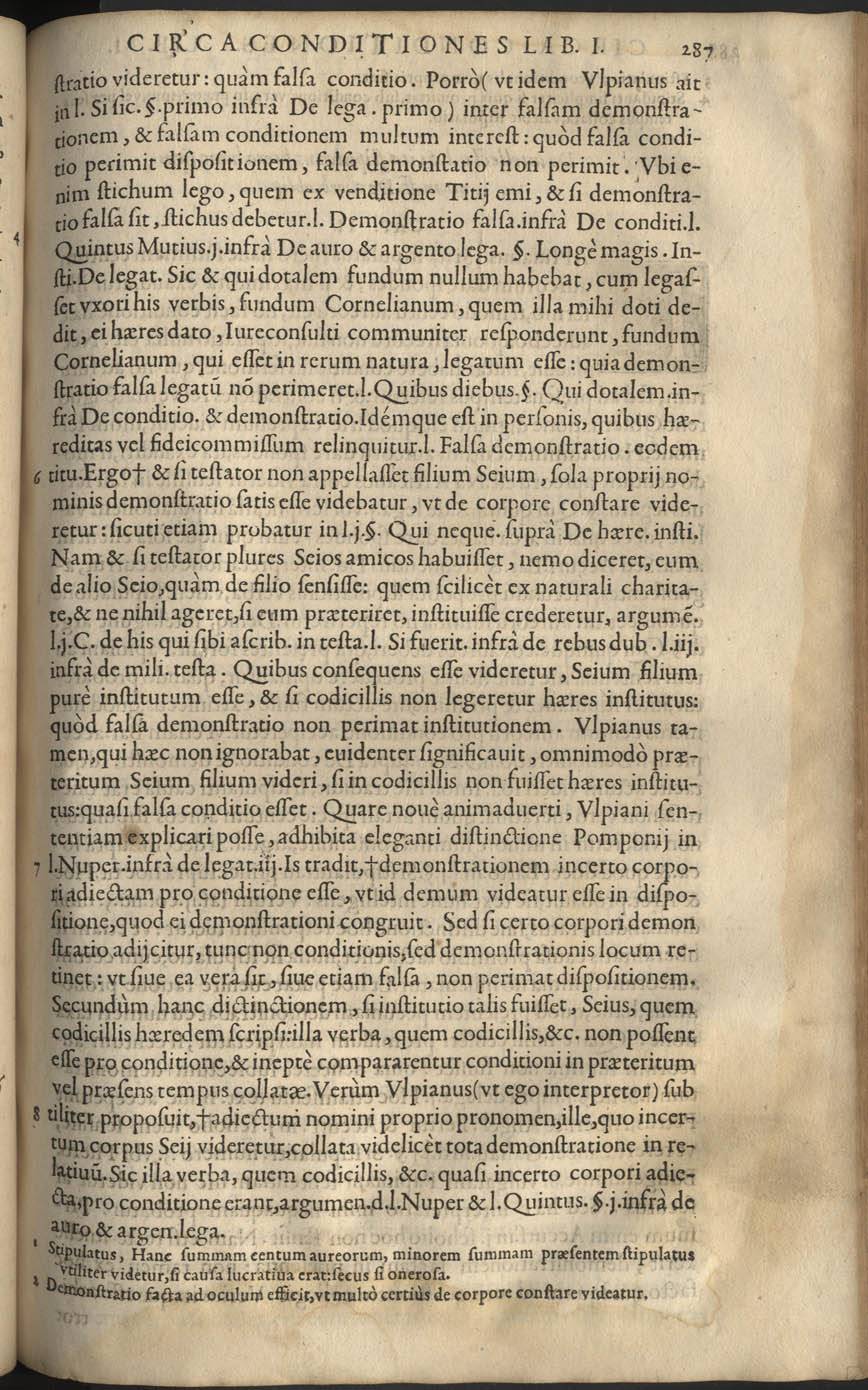 CIRCA CONDITIONES LIB. I. 287
ſtratio videretur: quàm falſa conditio. Porrò( vt idem Vlpianus ait
in l. Si ſic. §. primo infrà De lega. primo ) inter falſam demonſtra-
tionem, & falſam conditionem multum intereſt: quòd falſa condi-
tio perimit diſpoſitionem, falſa demonſtatio non perimit. Vbi e-
nim ſtichum lego, quem ex venditione Titij emi, & ſi demonſtra-
tio falſa ſit, ſtichus debetur.l. Demonſtratio falſa.infrà De conditi.l.
4 Quintus Mutius.j.infrà De auro & argento lega. §. Longè magis. In-
ſti.De legat. Sic & qui dotalem fundum nullum habebat, cum legaſ-
ſet vxori his verbis, fundum Cornelianum, quem illa mihi doti de-
dit, ei hæres dato, Iureconſulti communiter reſponderunt, fundum
Cornelianum, qui eſſet in rerum natura, legatum eſſe: quia demon-
ſtratio falſa legatū nō perimeret.l.Quibus diebus.§. Qui dotalem.in-
frà De conditio. & demonſtratio.Idémque eſt in perſonis, quibus hæ-
reditas vel fideicommiſſum relinquitur.l. Falſa demonſtratio. eodem
6 titu.Ergo† & ſi teſtator non appellaſſet filium Seium, ſola proprij no-
minis demonſtratio ſatis eſſe videbatur, vt de corpore conſtare vide-
retur: ſicuti etiam probatur in l.j.§. Qui neque. ſuprà De hære. inſti.
Nam & ſi teſtator plures Seios amicos habuiſſet, nemo diceret, eum
de alio Seio,quàm de filio ſenſiſſe: quem ſcilicèt ex naturali charita-
te,& ne nihil ageret,ſi eum præteriret, inſtituiſſe crederetur, argumē.
l.j.C. de his qui ſibi aſcrib. in teſta.l. Si fuerit. infrà de rebus dub. l.iij.
infrà de mili. teſta. Quibus conſequens eſſe videretur, Seium filium
purè inſtitutum eſſe, & ſi codicillis non legeretur hæres inſtitutus:
quòd falſa demonſtratio non perimat inſtitutionem. Vlpianus ta-
men,qui hæc non ignorabat, euidenter ſignificauit, omnimodò præ-
teritum Seium filium videri, ſi in codicillis non fuiſſet hæres inſtitu-
tus:quaſi falſa conditio eſſet. Quare nouè animaduerti, Vlpiani ſen-
tentiam explicari poſſe, adhibita eleganti diſtinctione Pomponij in
7 l.Nuper.infrà de legat.iij.Is tradit,†demonſtrationem incerto corpo-
ri adiectam pro conditione eſſe, vt id demum videatur eſſe in diſpo-
ſitione,quod ei demonſtrationi congruit. Sed ſi certo corpori demon
ſtratio adijcitur, tunc non conditionis,ſed demonſtrationis locum re-
tinet: vt ſiue ea vera ſit, ſiue etiam falſa, non perimat diſpoſitionem.
Secundùm hanc dictinctionem, ſi inſtitutio talis fuiſſet, Seius, quem
codicillis hæredem ſcripſi:illa verba, quem codicillis,&c. non poſſent
eſſe pro conditione,& ineptè compararentur conditioni in præteritum
vel præſens tempus collatæ.Verùm Vlpianus(vt ego interpretor) ſub
8 tiliter propoſuit,†adiectum nomini proprio pronomen,ille,quo incer-
tum corpus Seij videretur,collata videlicèt tota demonſtratione in re-
latiuū.Sic illa verba, quem codicillis, &c. quaſi incerto corpori adie-
cta,pro conditione erant,argumen.d.l.Nuper & l.Quintus. §.j.infrà de
auro & argen.lega.
1 Stipulatus, Hanc ſummam centum aureorum, minorem ſummam præſentem ſtipulatus
vtiliter videtur,ſi cauſa lucratiua erat:ſecus ſi oneroſa.
2 Demonſtratio facta ad oculum efficit,vt multò certiùs de corpore conſtare videatur.